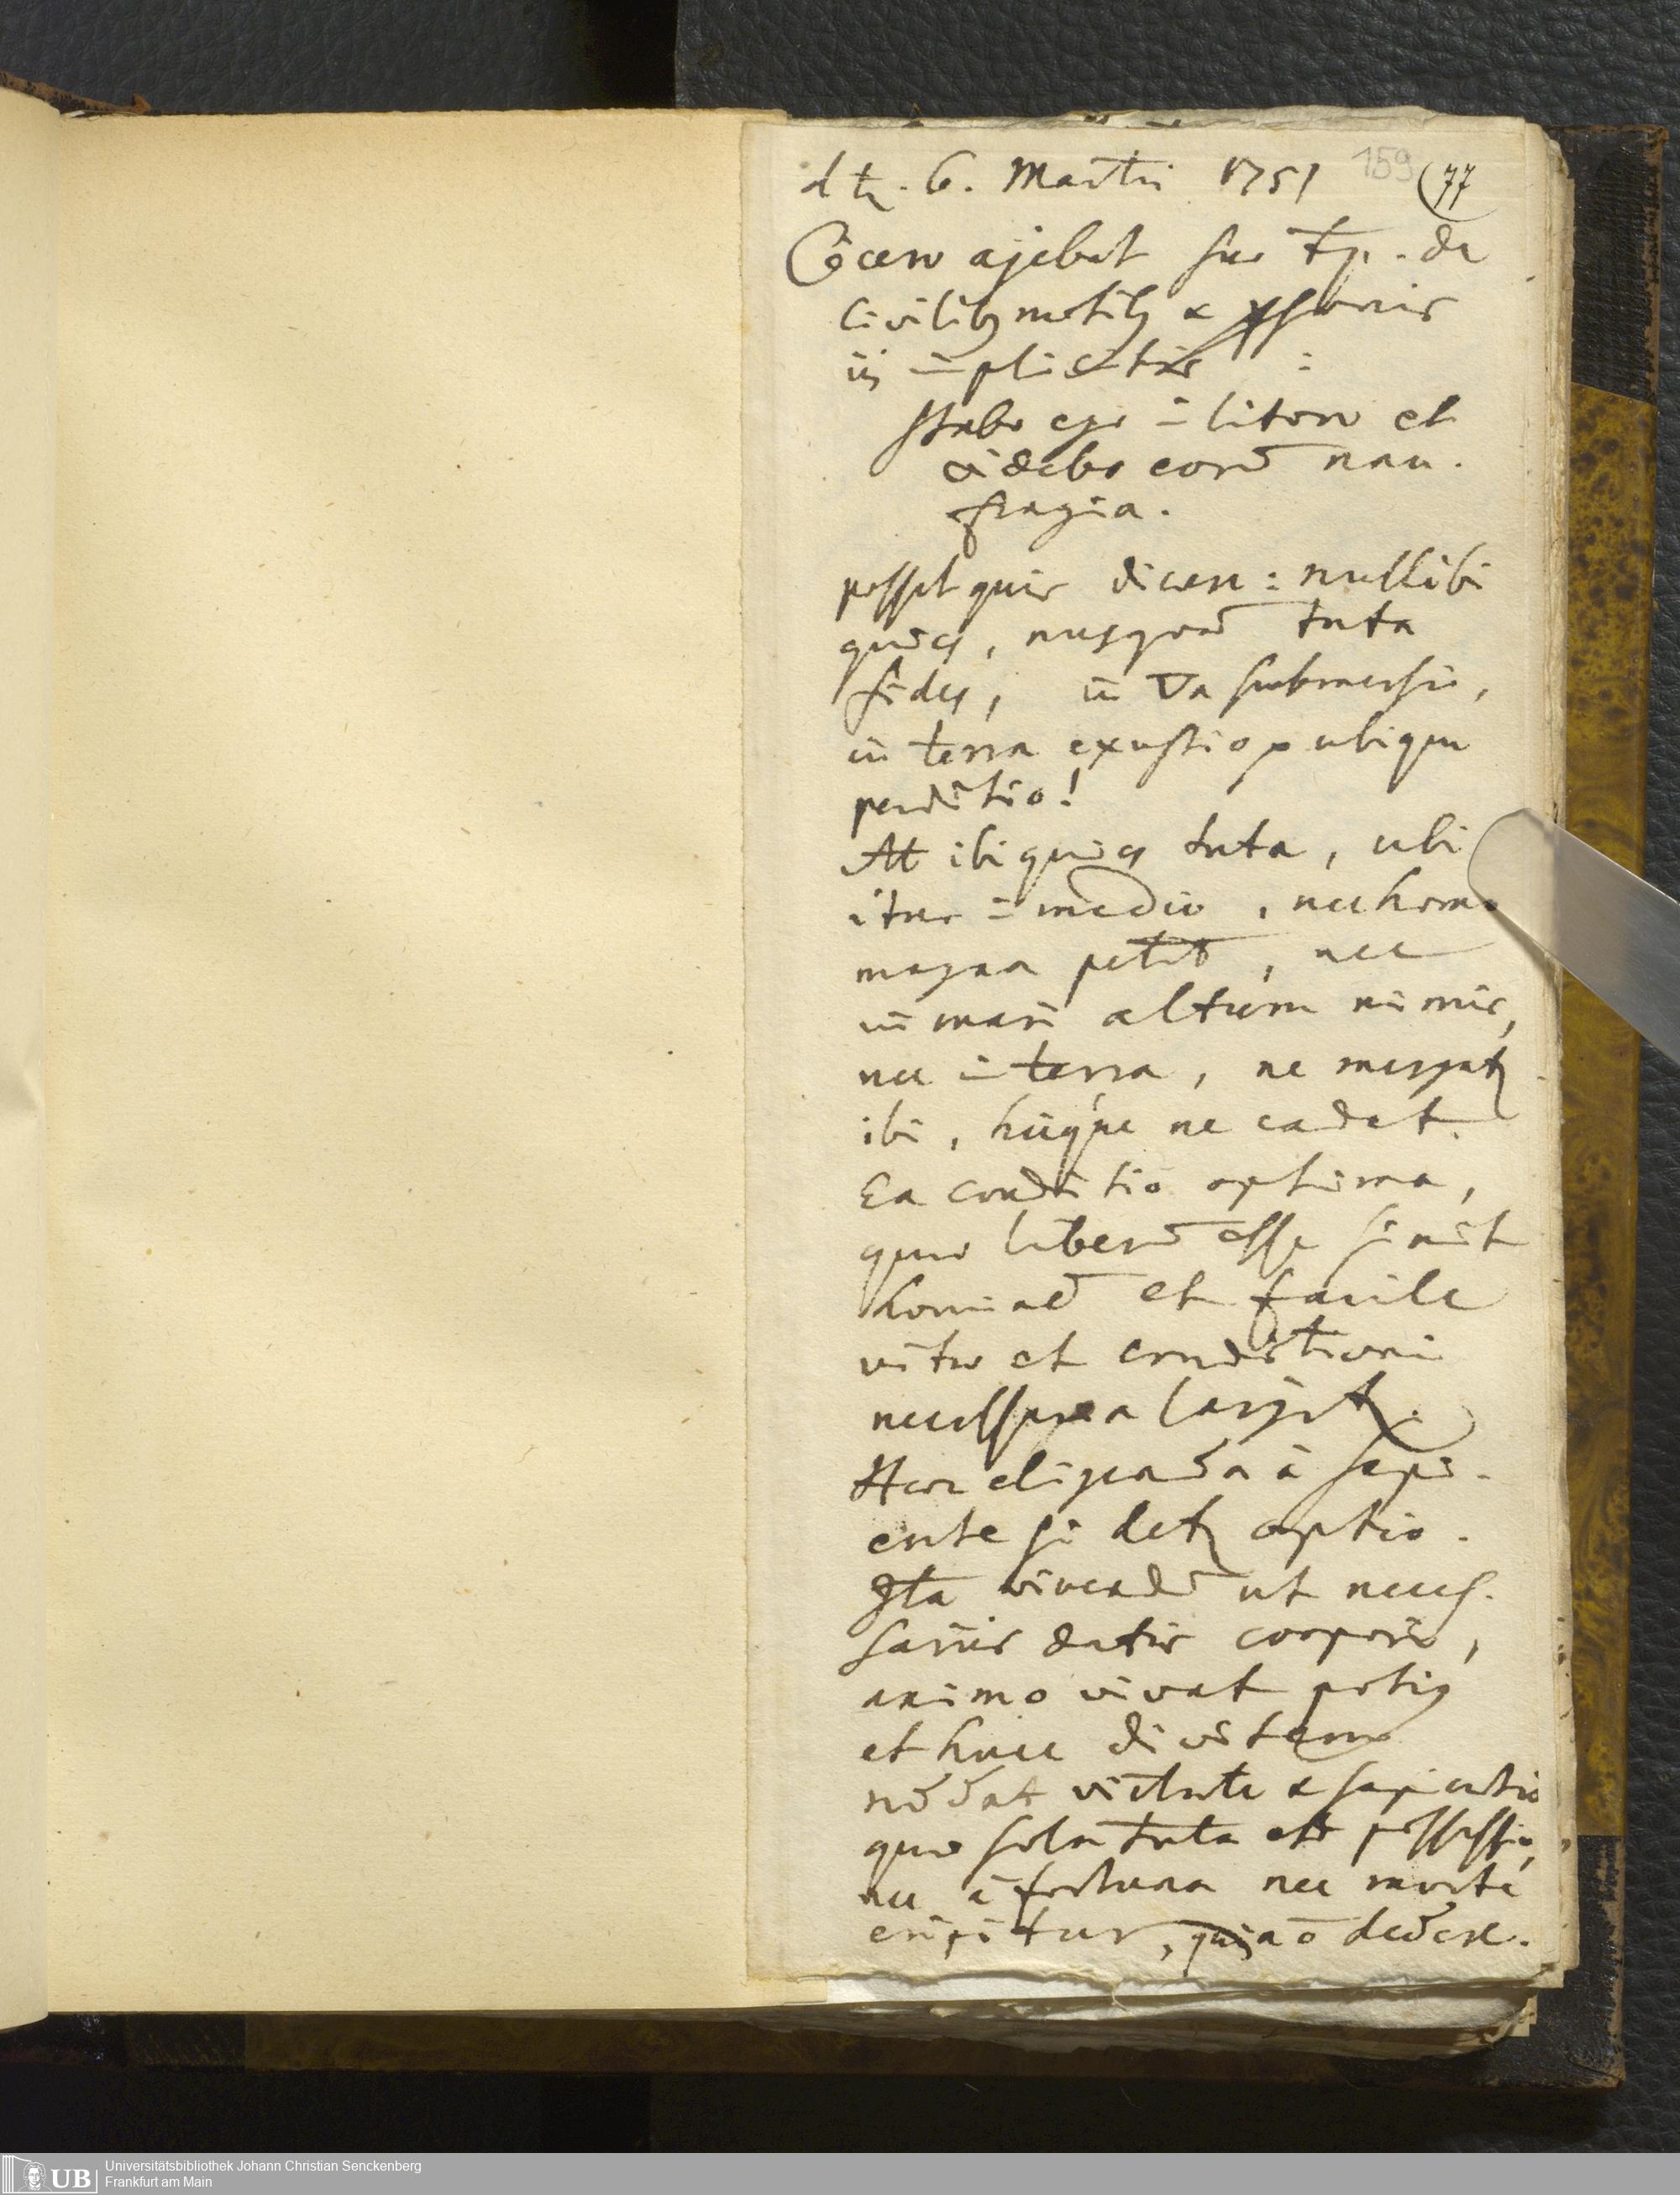 d . 6. Martii 1751 159 (77
Cicero ajebat suo tp. de
civilib motib & psonis
iis īplicitis :
Stabo ego ī litore et
videbo eorū nau-
fragia.
posset quis dicere: nullibi
quies, nusquā tuta
fides, in ▽a submersio,
in terra exustio, ubique
perditio!
At ibi quies tuta, ubi
itur ī medio, nec homo
magna petit, nec
in mari altum nimis,
nec ī terra, ne mergatr
ibi, hicque ne cadat.
Ea conditio optima,
quae liberū esse sinit
hominē et facile
vitae et eruditioni
necessaria largitr.
Haec eligenda à sapi-
ente si detr optio.
Ita vivendū ut neces-
sariis datis corporis,
animo vivat potius
et hunc divitem
reddat virtute & sapientia
quae sola tuta est possessio,
nec à fortuna nec morte
eripitur, quia ō
Universitätsbibliothek Johann Christian Senckenberg
Frankfurt am Main
UB